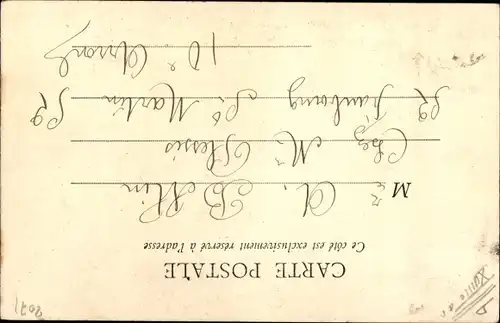 CARTE POSTALE
Ce côté est exclusivement réservé à l'adresse
M
Chez Mr Plessis
92 Faubourg St Martin 92
10e Arrond